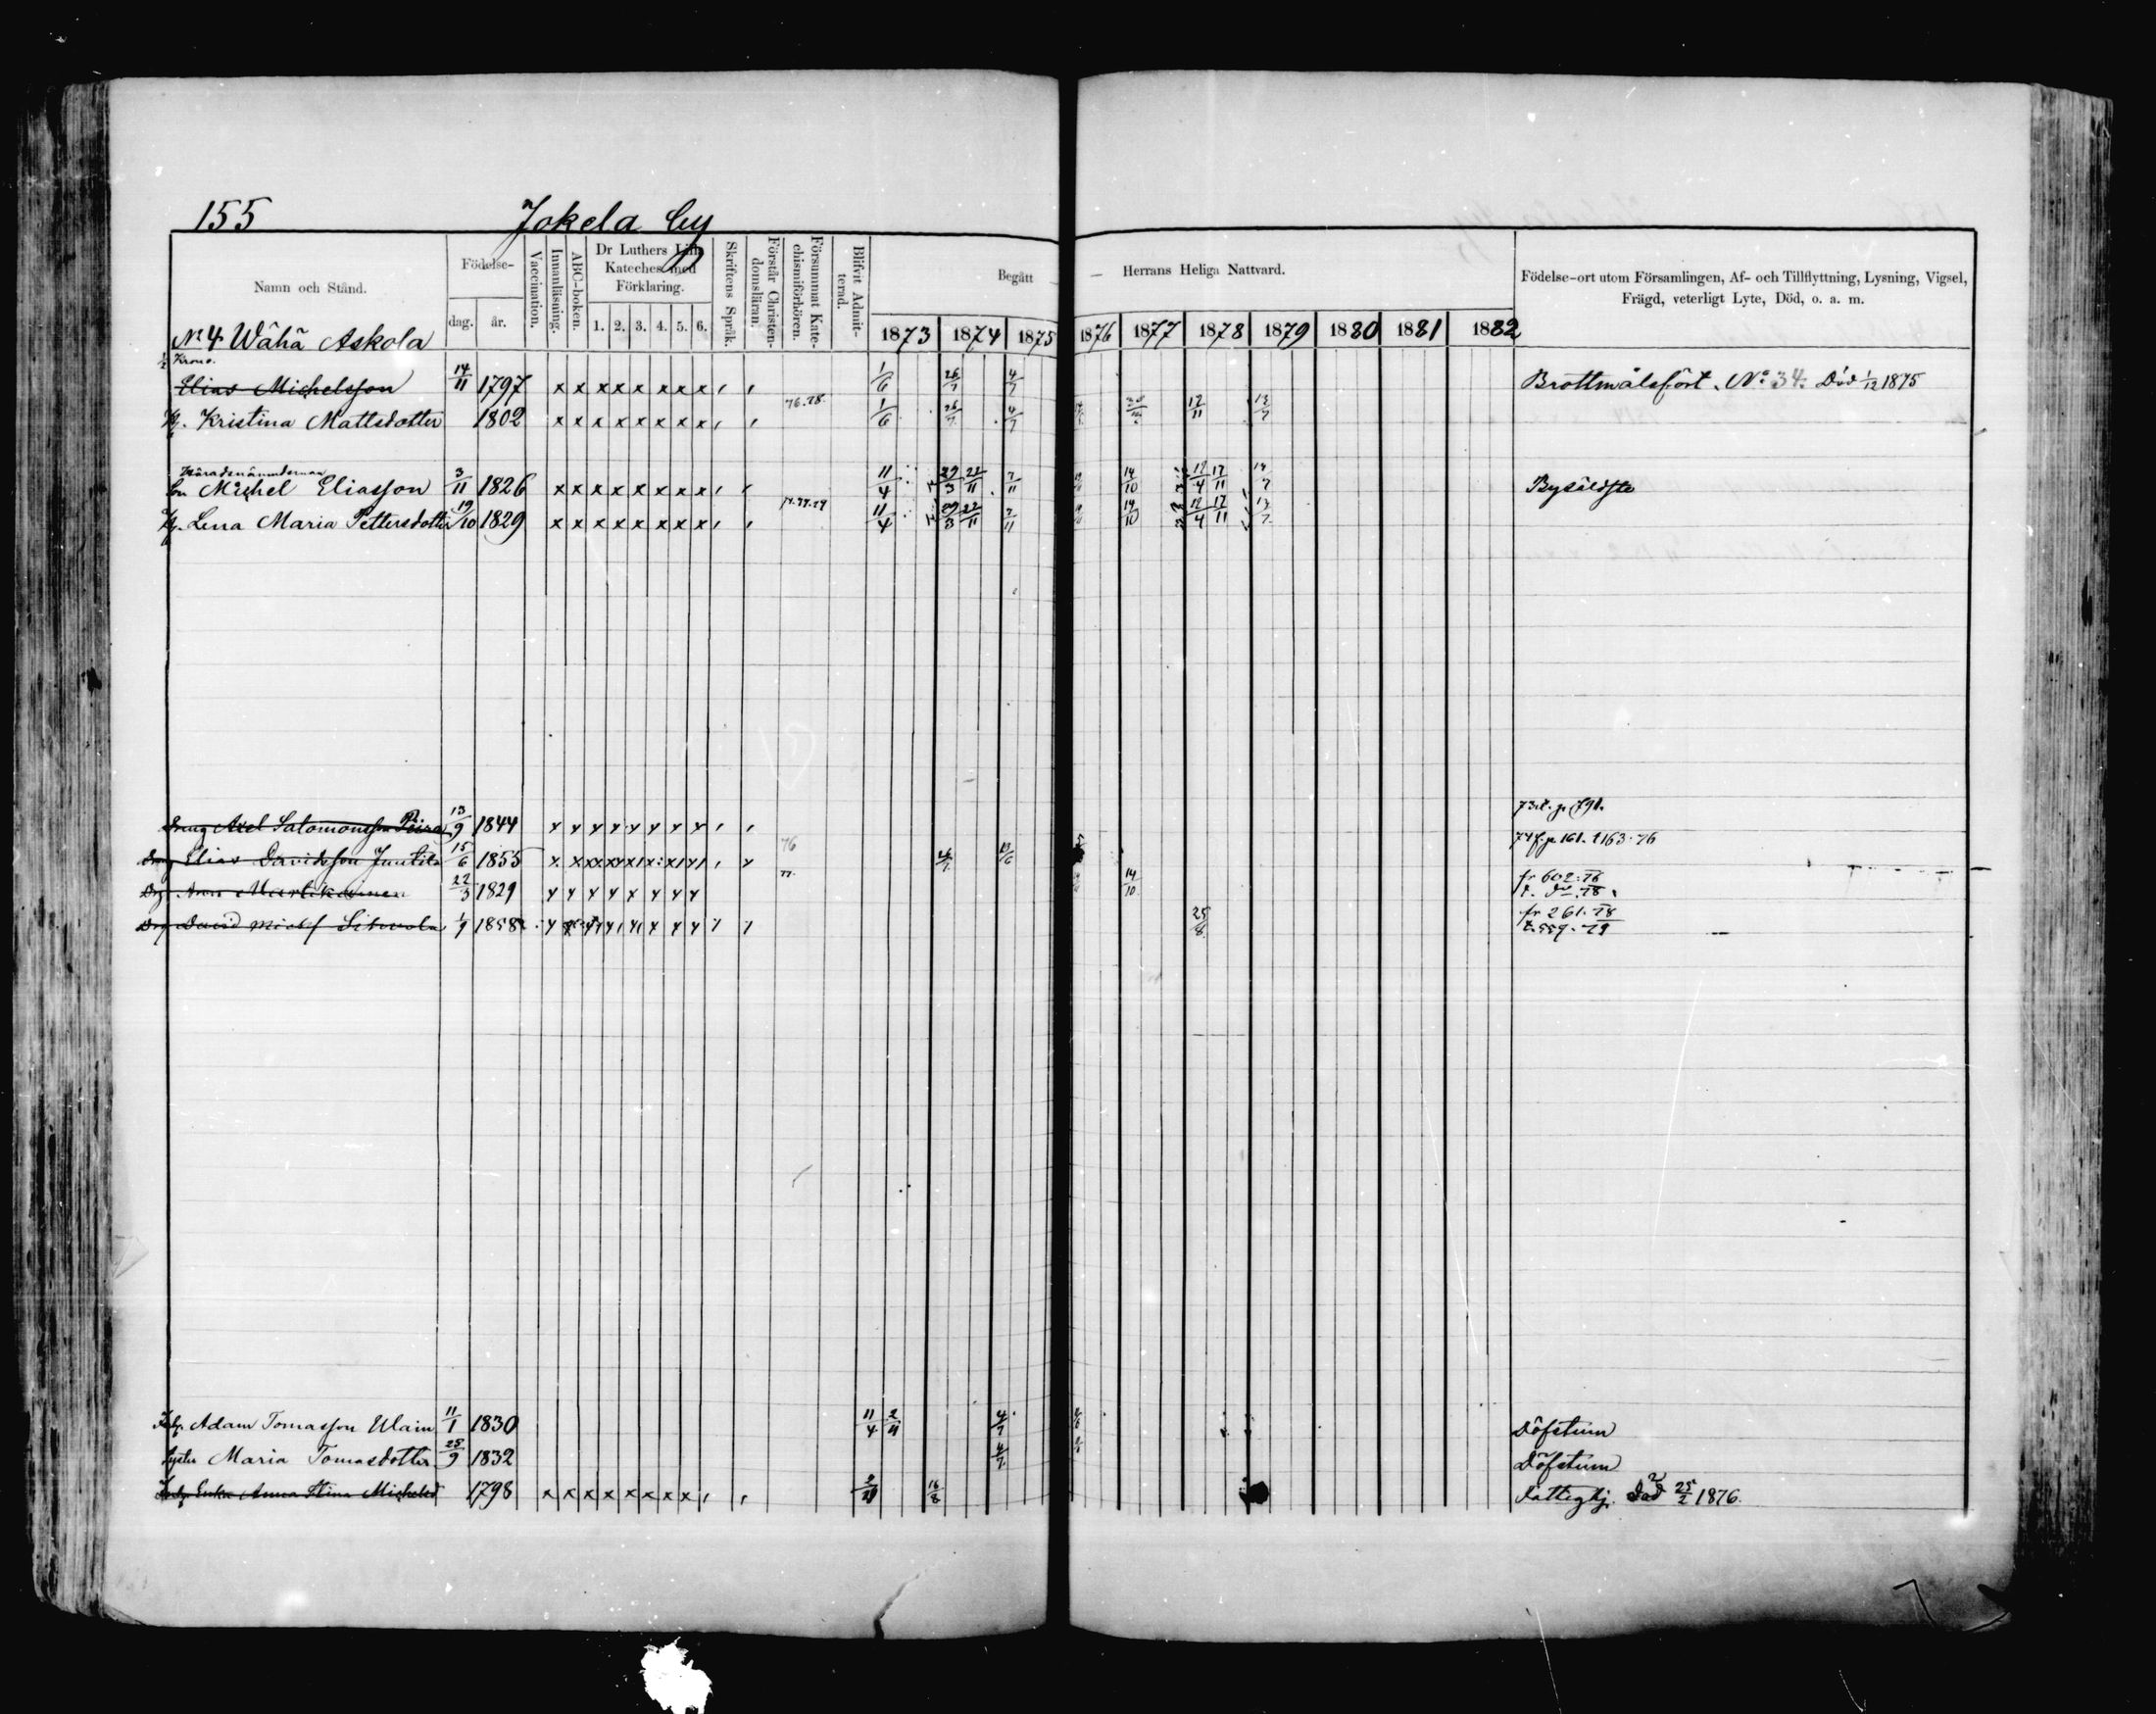 155 Jokela by
Namn och Stånd. Födelse- dag. år. Vaccination. Innanläsning. ABC-boken. Dr Luthers Lilla Kateches med Förklaring. 1. 2. 3. 4. 5. 6. Skriftens Språk. Förstår Christendomsläran. Försummat Katechismiförhören. Blifvit Admitterad. Begått Herrans Heliga Nattvard. Födelse-ort utom Församlingen, Af- och Tillflyttning, Lysning, Vigsel, Frägd, veterligt Lyte, Död, o. a. m.
1873 1874 1875 1876 1877 1878 1879 1880 1881 1882
No 4 Wähä Askola
1/2 Krono.
Elias Michelsson 14/11 1797 x x x x x x x x , , 1/6 26/7 4/7 Brottmålsfört. No 34. Död 1/12 1875
Kristina Mattsdotter 1802 x x x x x x x x , , 76.78. 1/6 26/7 4/7 17/11 13/7
Häradsnämndeman
Son Michel Eliasson 3/11 1826 x x x x x x x x , , 11/4 29/3 22/11 7/11 14/10 12/4 17/11 13/7 Byäldste
Lena Maria Pettersdotter 19/10 1829 x x x x x x x x , , 11/4 29/3 22/11 7/11 14/10 12/4 17/11 13/7
Dreng Axel Salomonsson Piira 13/9 1844 x x x x x x x x , ,
Dreng Elias Davidsson Juntila 15/6 1855 76 26/7 74 f. p 161. t 163.76
Drg Martikainen 22/3 1829 77. 14/10 fr 602.76
t. do 78
Drg David Sihvola 1/9 1858 25/8 fr 261.78
t. 559.79
Adam Tomasson Ulain 11/1 1830 11/4 2/11 4/7 Döfstum
Syster Maria Tomasdotter 25/9 1832 4/7 Döfstum
Enka Anna Stina Michelsd 1798 x x x x x x x x , , 16/8 Fattighj. Död 25/2 1876.